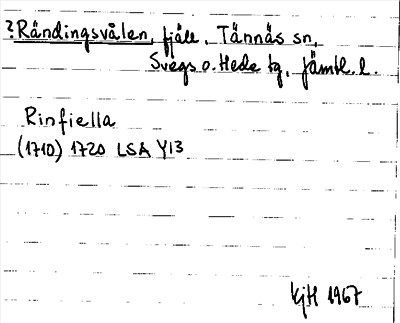 ?Rändingsvålen, fjäll, Tännäs sn,
Svegs o. Hede tg, Jämtl. l.
Rinfiella
(1710) 1720 LSA Y13
KjH 1967